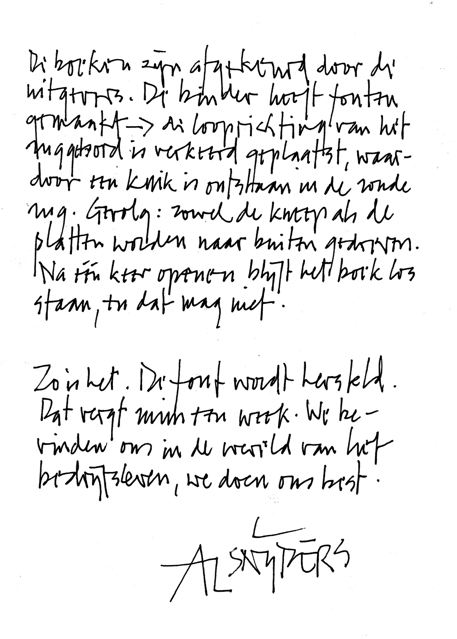 De boeken zijn afgekeurd door de
uitgevers. De binder heeft fouten
gemaakt → de looprichting van het
ruggebord is verkeerd geplaatst, waar-
door een knik is ontstaan in de ronde
rug. Gevolg: zowel de kneep als de
platten worden naar buiten gedreven.
Na één keer openen blijft het boek los
staan, en dat mag niet.

Zo is het. De fout wordt hersteld.
Dat vergt minstens een week. We be-
vinden ons in de wereld van het
bedrijfsleven, we doen ons best.

AL SNIJDERS